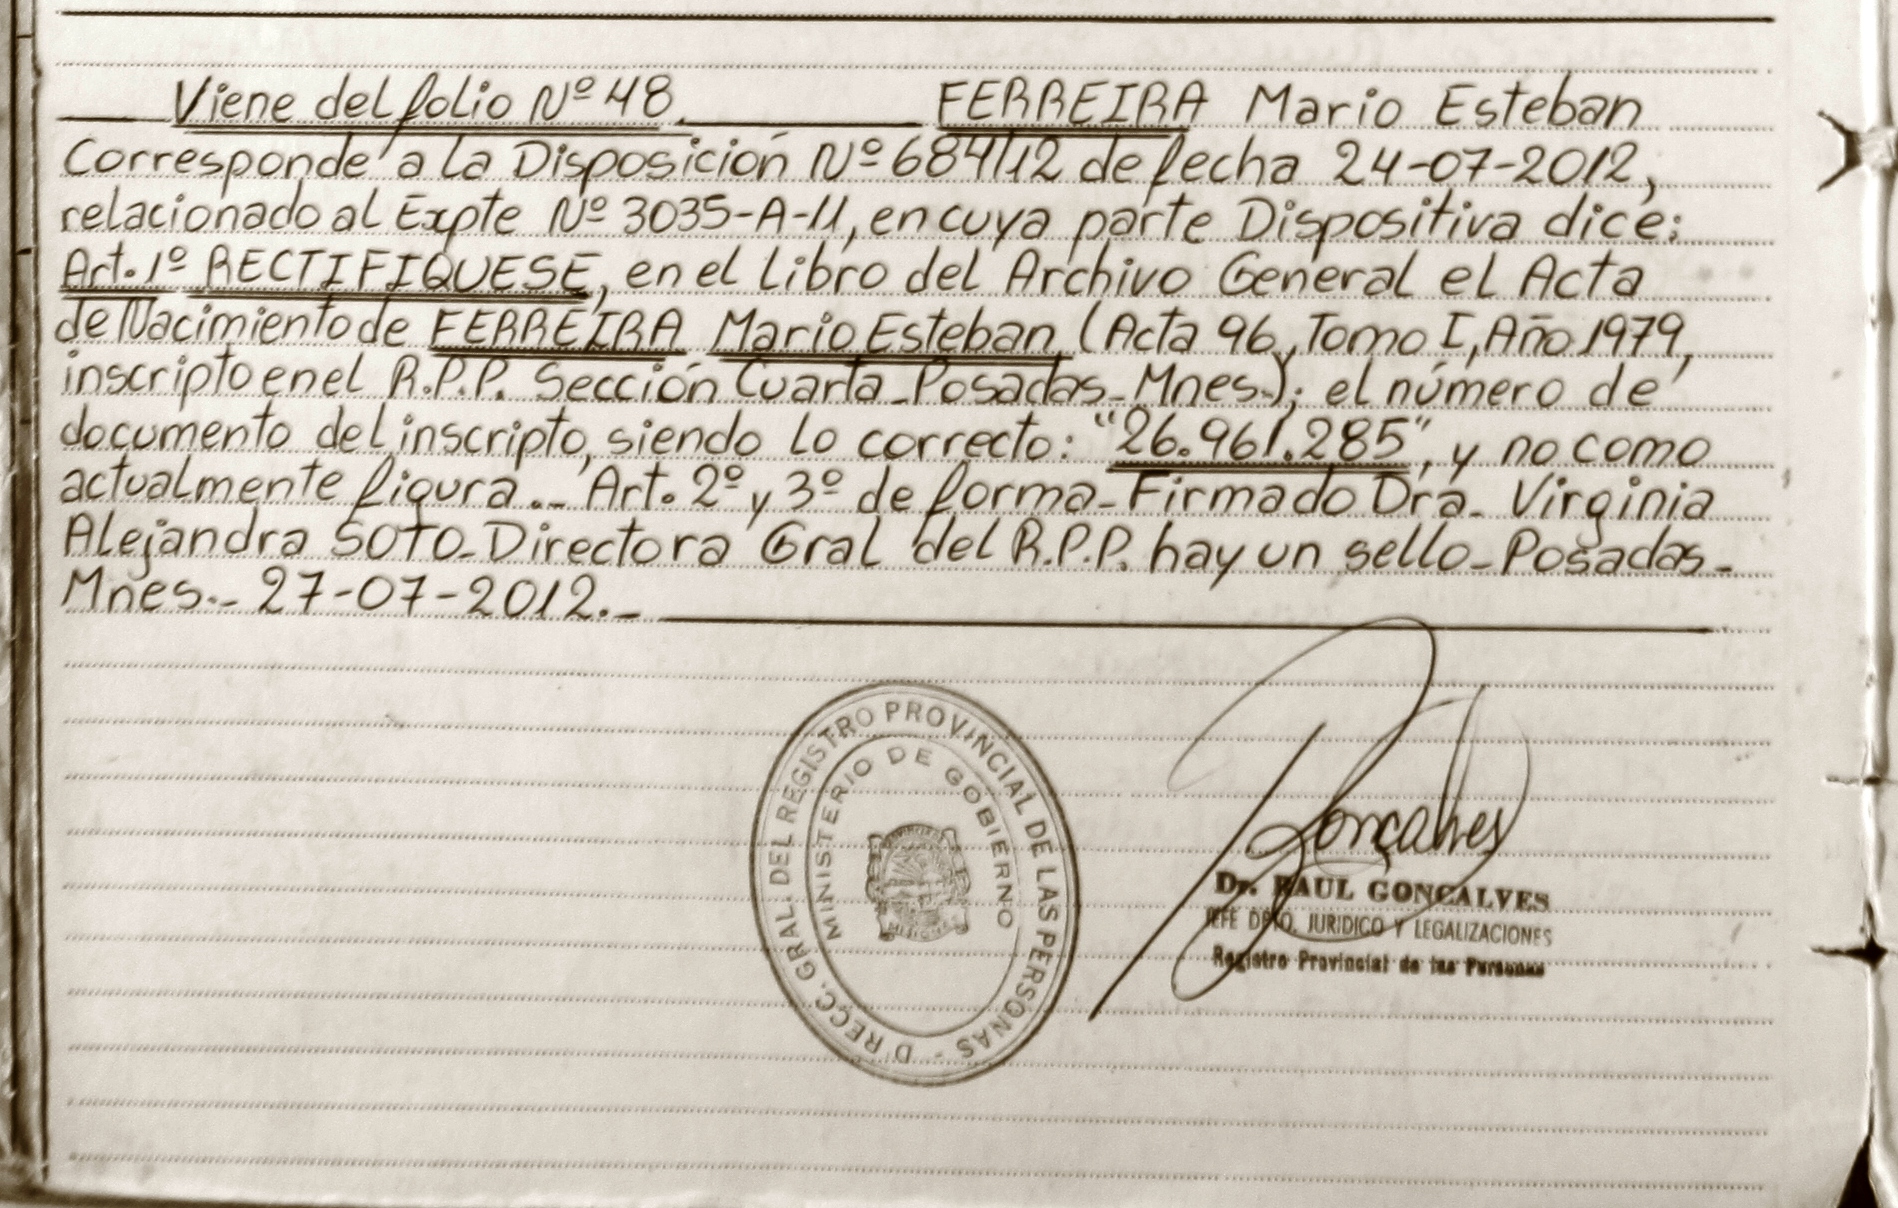 Viene del folio Nº 48. FERREIRA Mario Esteban
Corresponde a la Disposición Nº 684/12 de fecha 24-07-2012,
relacionado al Expte Nº 3035-A-11, en cuya parte Dispositiva dice:
Art. 1º RECTIFIQUESE, en el Libro del Archivo General el Acta
de Nacimiento de FERREIRA Mario Esteban (Acta 96, Tomo I, Año 1979,
inscripto en el R.P.P. Sección Cuarta-Posadas-Mnes.); el número de
documento del inscripto, siendo lo correcto: "26.961.285", y no como
actualmente figura.- Art. 2º y 3º de forma-Firmado Dra. Virginia
Alejandra SOTO-Directora Gral del R.P.P. hay un sello-Posadas-
Mnes.- 27-07-2012.-
DIRECC. GRAL. DEL REGISTRO PROVINCIAL DE LAS PERSONAS -
MINISTERIO DE GOBIERNO
MISIONES
Gonçalves
Dr. RAUL GONCALVES
JEFE DPTO. JURIDICO Y LEGALIZACIONES
Registro Provincial de las Personas